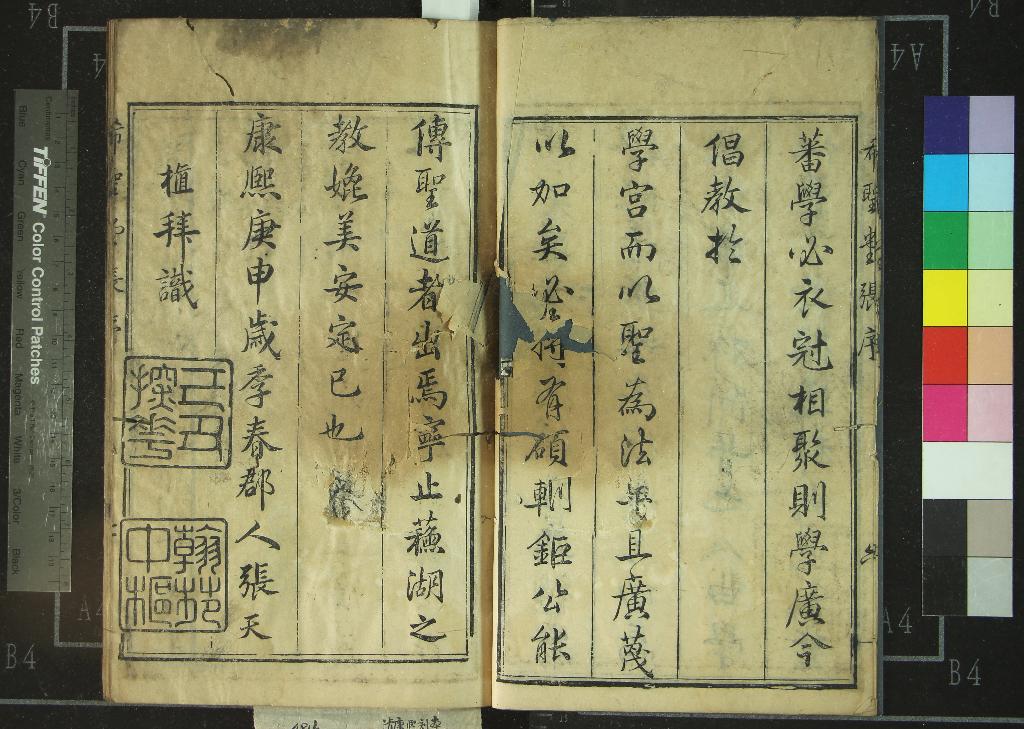 蕃學必衣冠相聚則學廣今
倡教於
學宮而以聖為法
且廣蔑
以加矣
有碩輞鉅公能
傳聖道者出焉寧止蘓湖之
教娩美安定已也
康熈庚申歲季春郡人張天
植拜識
探花
翰苑
中樞
B4
A4
A4
B4
TIFFEN Color Control Patches
Blue
Cyan
Green
Yellow
Red
Magenta
White
3/Color
Black